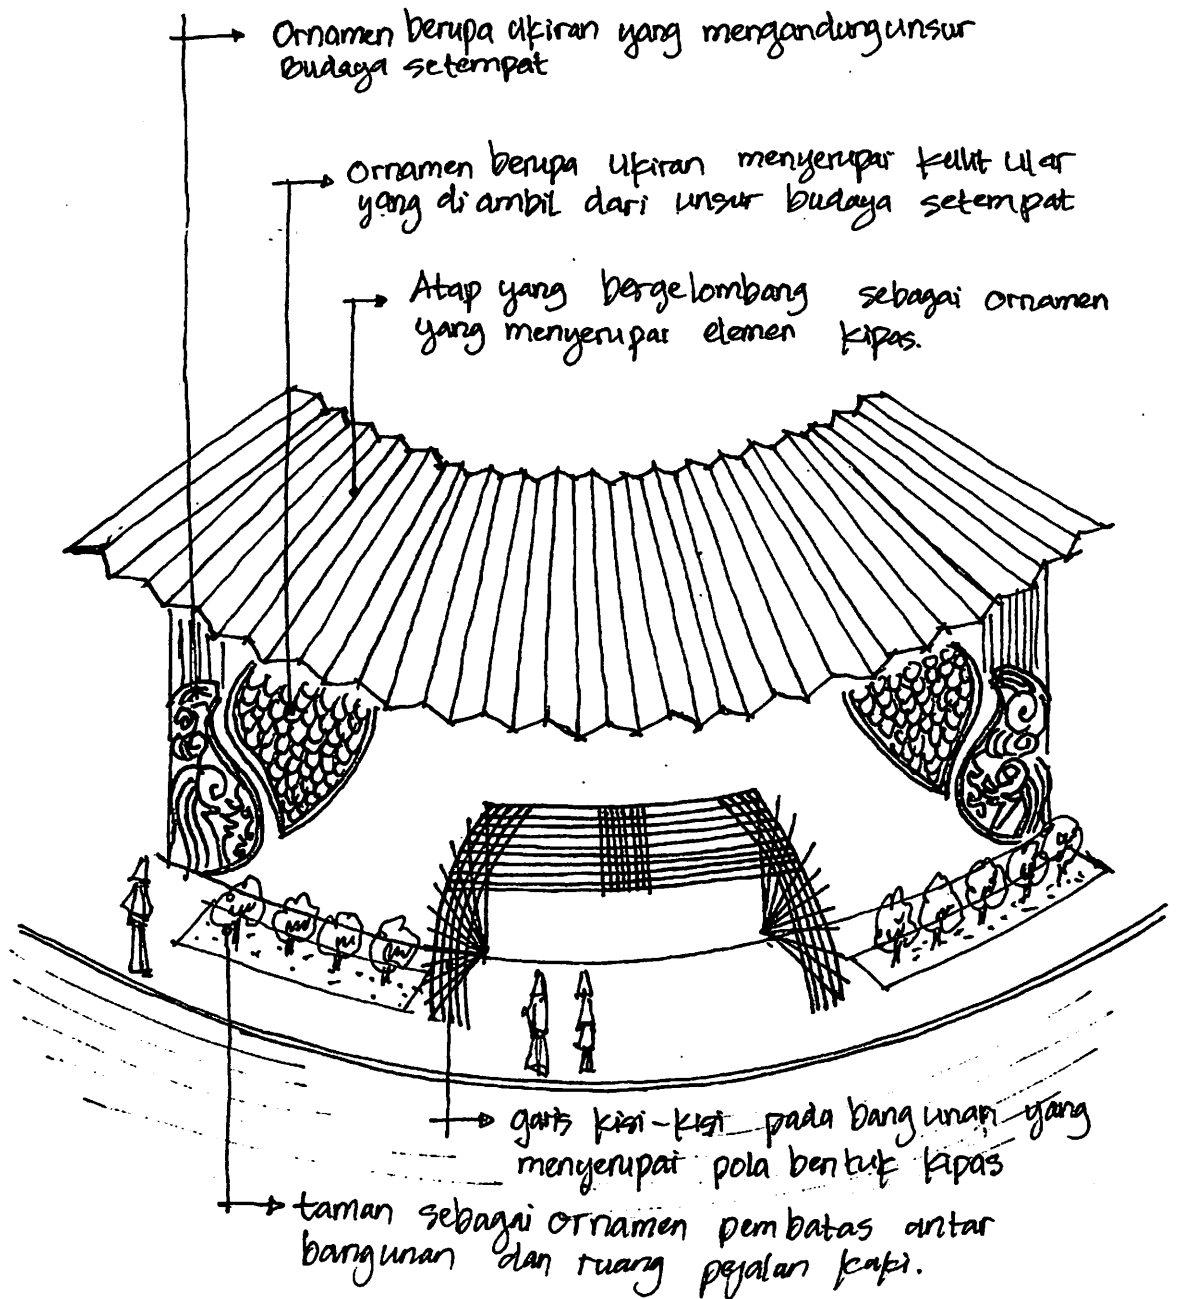 Ornamen berupa ukiran yang mengandung unsur
Budaya setempat
Ornamen berupa ukiran menyerupai kulit ular
yang di ambil dari unsur budaya setempat
Atap yang bergelombang sebagai ornamen
yang menyerupai elemen kipas.
garis kisi-kisi pada bangunan yang
menyerupai pola bentuk kipas
taman sebagai ornamen pembatas antar
bangunan dan ruang pejalan kaki.